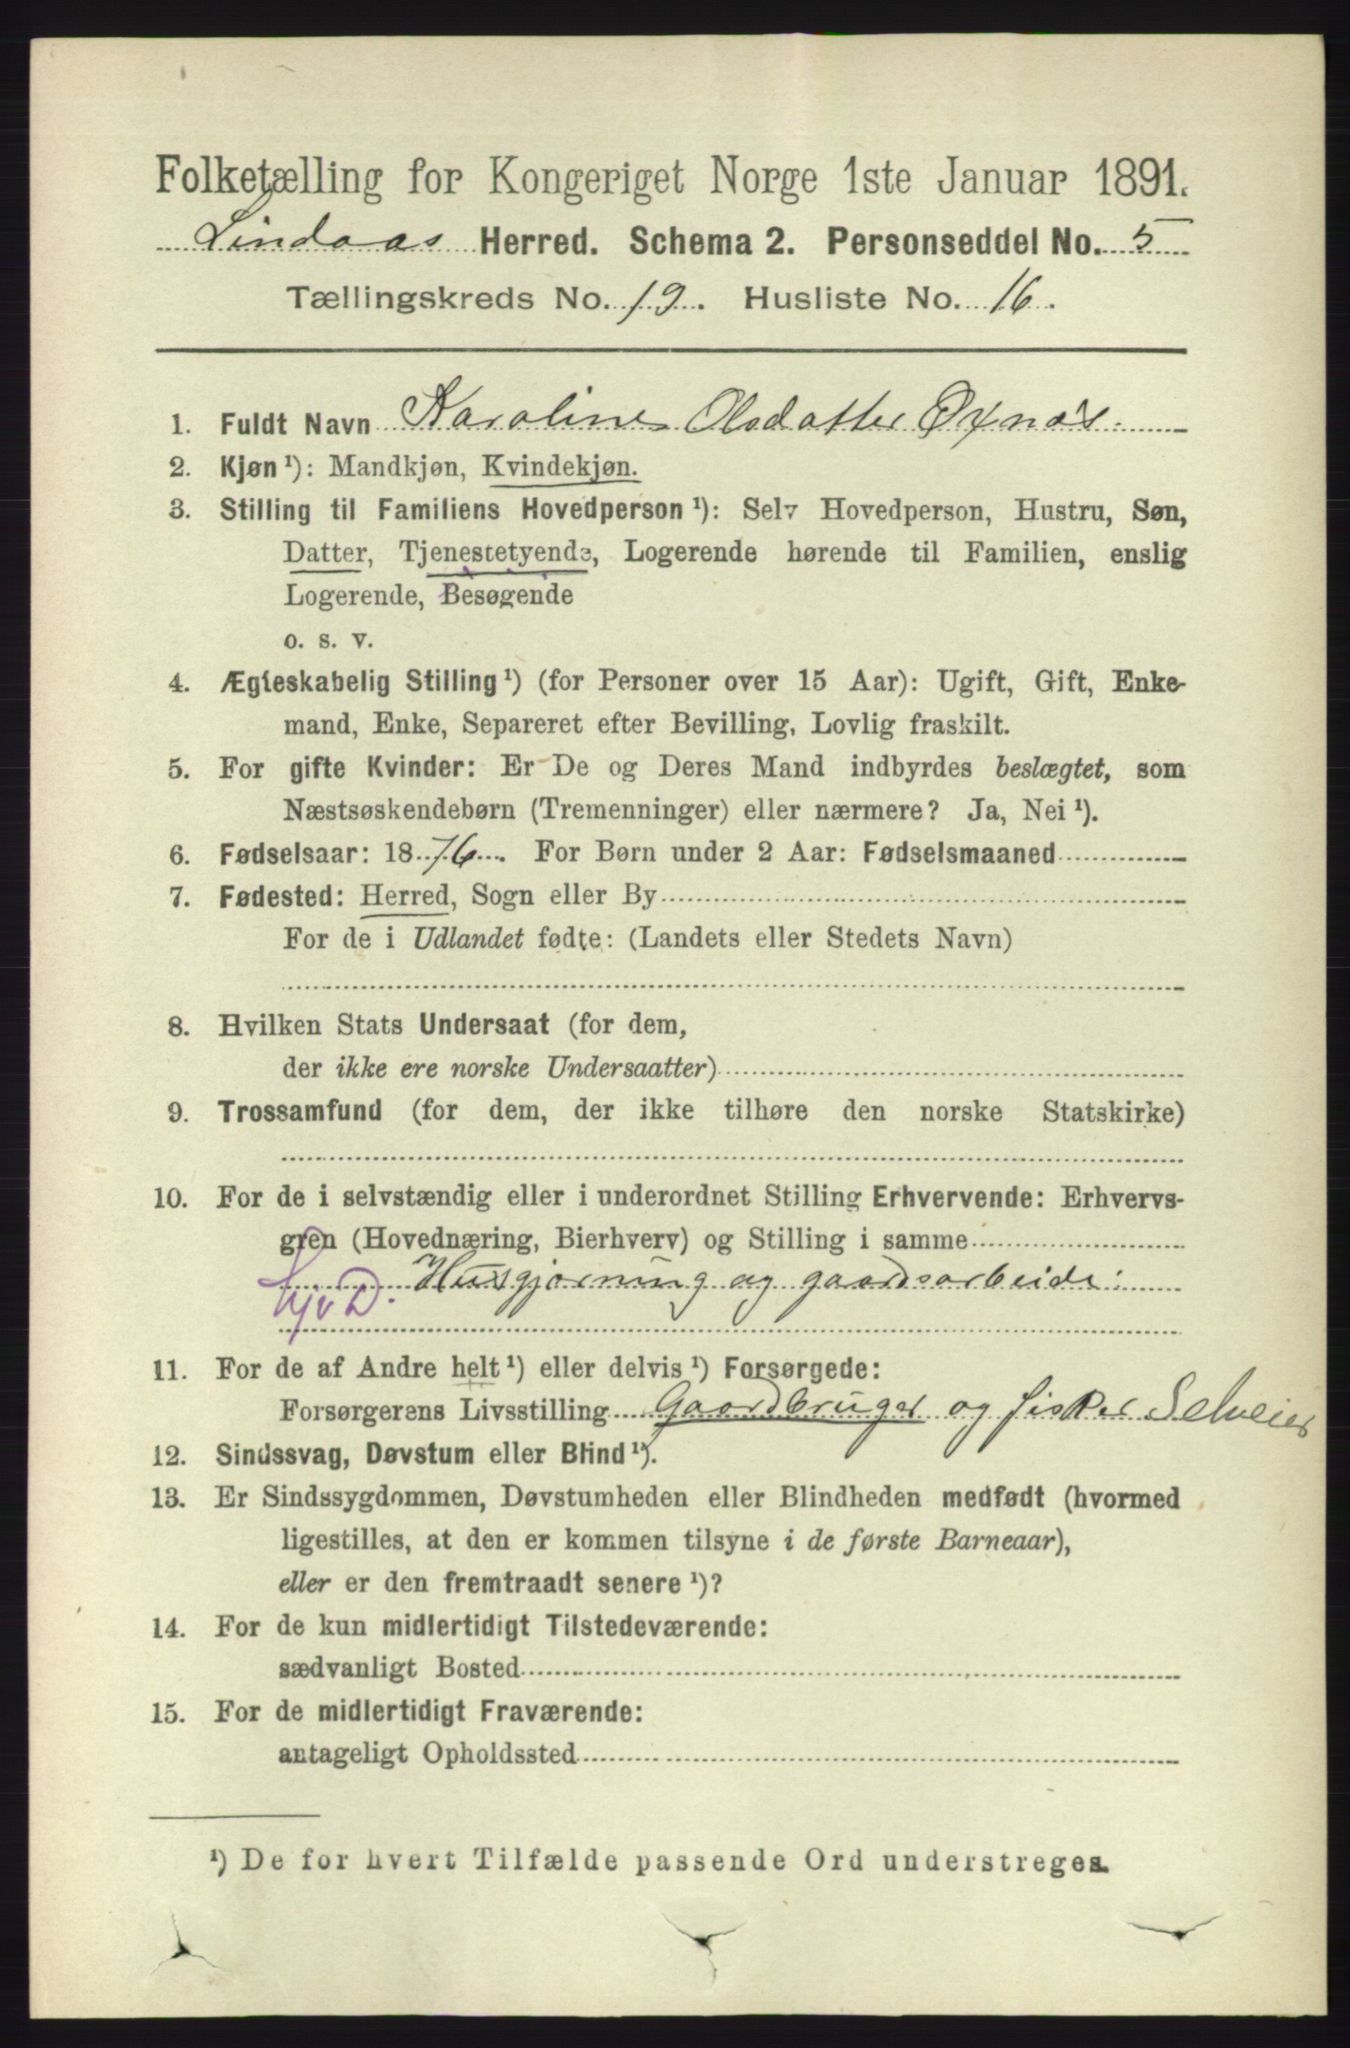 Folketælling for Kongeriget Norge 1ste Januar 1891.
Lindaas Herred. Schema 2. Personseddel No. 5
Tællingskreds No. 19. Husliste No. 16.
1. Fuldt Navn Karoline Olsdatter Oxnæs.
2. Kjøn ¹): Mandkjøn, Kvindekjøn.
3. Stilling til Familiens Hovedperson ¹): Selv Hovedperson, Hustru, Søn,
Datter, Tjenestetyende, Logerende hørende til Familien, enslig
Logerende, Besøgende
o. s. v.
4. Ægteskabelig Stilling ¹) (for Personer over 15 Aar): Ugift, Gift, Enke-
mand, Enke, Separeret efter Bevilling, Lovlig fraskilt.
5. For gifte Kvinder: Er De og Deres Mand indbyrdes beslægtet, som
Næstsøskendebørn (Tremenninger) eller nærmere? Ja, Nei ¹).
6. Fødselsaar: 1876. For Børn under 2 Aar: Fødselsmaaned
7. Fødested: Herred, Sogn eller By
For de i Udlandet fødte: (Landets eller Stedets Navn)
8. Hvilken Stats Undersaat (for dem,
der ikke ere norske Undersaatter)
9. Trossamfund (for dem, der ikke tilhøre den norske Statskirke)
10. For de i selvstændig eller i underordnet Stilling Erhvervende: Erhvervs-
gren (Hovednæring, Bierhverv) og Stilling i samme
Husgjorning og gaardsarbeide.
11. For de af Andre helt ¹) eller delvis ¹) Forsørgede:
Forsørgerens Livsstilling Gaardbruger og fisker Selveier
12. Sindssvag, Døvstum eller Blind ¹).
13. Er Sindssygdommen, Døvstumheden eller Blindheden medfødt (hvormed
ligestilles, at den er kommen tilsyne i de første Barneaar),
eller er den fremtraadt senere ¹)?
14. For de kun midlertidigt Tilstedeværende:
sædvanligt Bosted
15. For de midlertidigt Fraværende:
antageligt Opholdssted
¹) De for hvert Tilfælde passende Ord understreges.